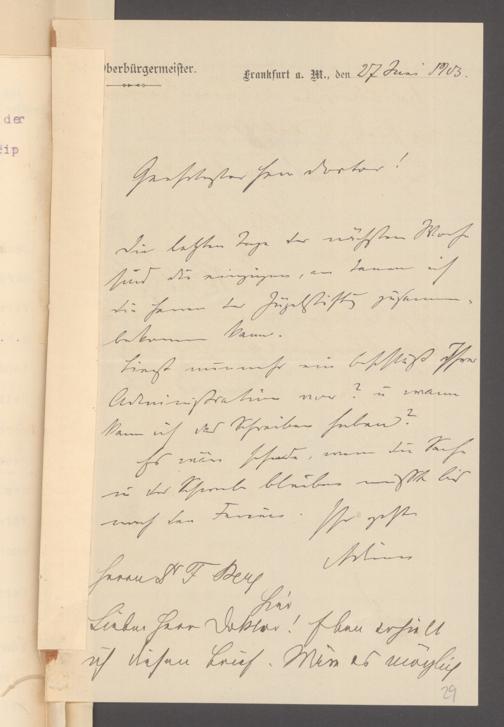 der
cip
Oberbürgermeister.
Frankfurt a. M., den 27 Juni 1903.
Geehrtester Herr Doctor!
Die letzten Tage der nächsten Woche
sind die einzigen, an denen ich
die Herren der zusammen-
bekommen kann.
Liegt nunmehr ein Beschluß Ihrer
Administration vor? u wann
kann ich das Schreiben haben?
Es wäre schade, wenn die Sache
in der Schwebe bleiben müßte bis
nach den Ferien. Ihr ergbst
Adickes
Herrn Dr F Berg
hier
Lieber Herr Doktor! Eben erhielt
ich diesen Brief. Wäre es möglich
29